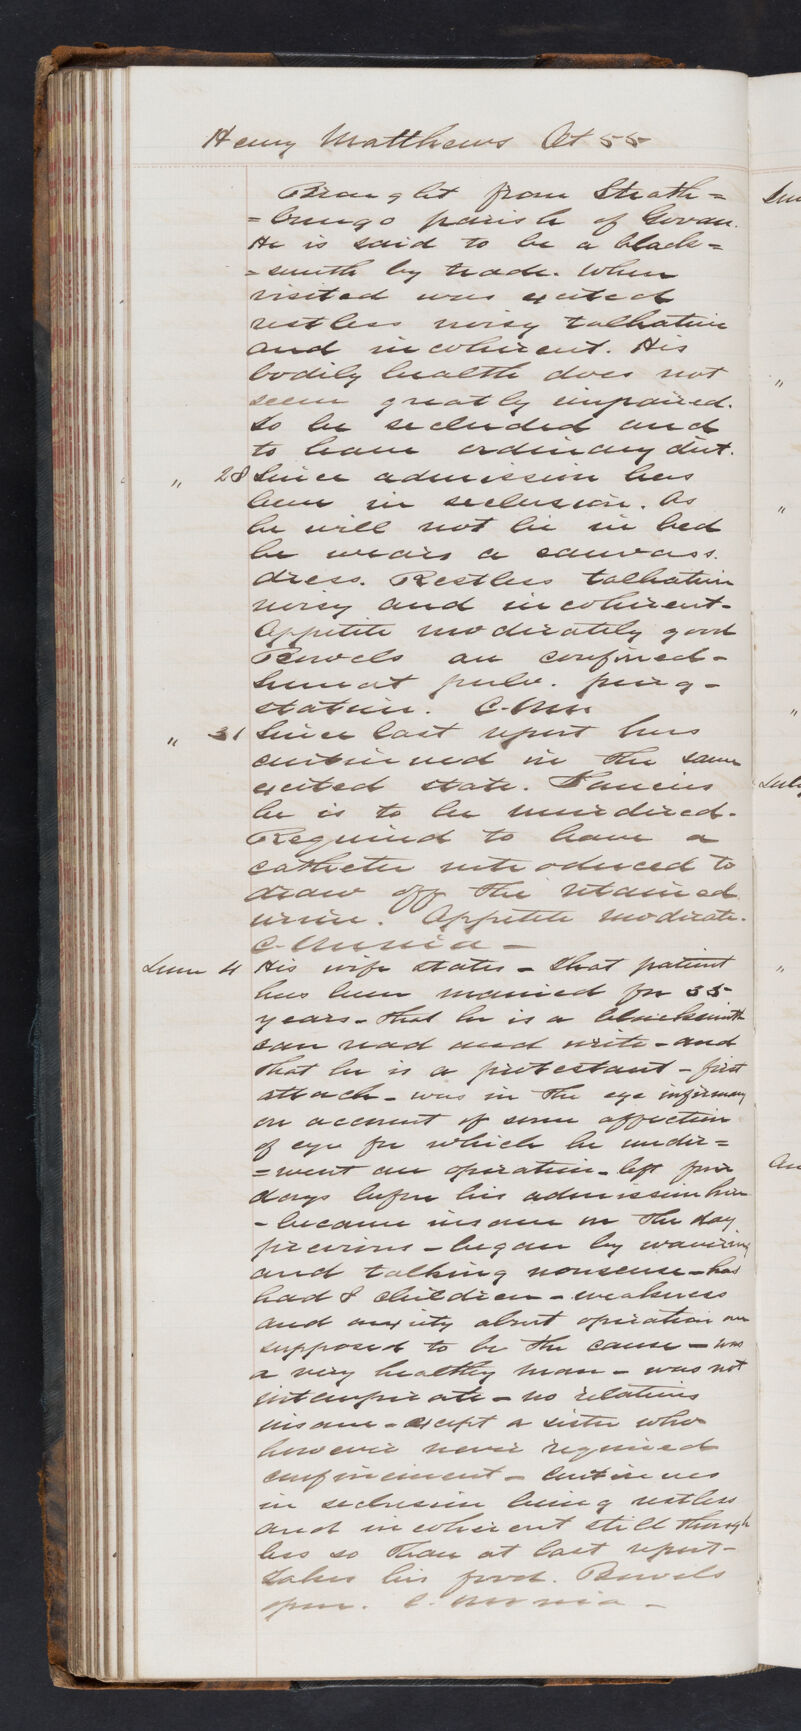 Henry Matthews Æt 55
Brought from Strath=
=bungo parish of Govan.
He is said to be a black=
=smith by trade. When
visited was excited
restless noisy talkative
and incoherent. His
bodily health does not
seem greatly impaired.
To be secluded and
to have ordinary diet.
" 28 Since admission has
been in seclusion. As
he will not lie in bed
he wears a canvass
dress. Restless talkative
noisy and incoherent-
Appetite moderately good
Bowels are confined-
Sumat pulv. purg-
statim.
" 31 Since last report has
continued in the same
excited state. Fancies
he is to be murdered.
Required to have a
catheter introduced to
draw off the retained
urine. Appetite moderate.
C. Mania -
June 4 His wife states - that patient
has been married for 35
years - that he is a blacksmith
can read and write - and
that he is a protestant - first
attack - was in the eye infirmary
on account of some affection
of eye for which he under=
=went an operation - left four
days before his admission here
- became insane on the day
previous - began by wavering
and talking nonsense - has
had 8 children - weakness
and anxiety about operation are
supposed to be the cause - was
a very healthy man - was not
intemperate - no relations
insane - except a sister who
however never required
confinement - Continues
in seclusion being restless
and incoherent still though
less so than at last report -
Takes his food. Bowels
open. C. Mania -
"
"
"
July
"